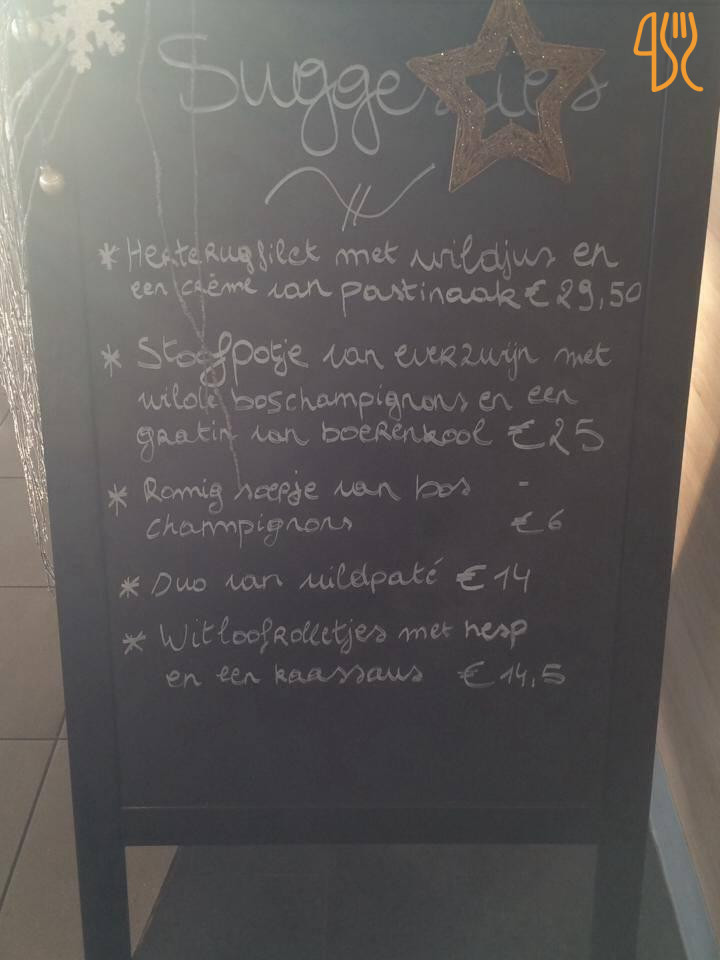 Suggesties
* Herterugfilet met wildjus en
een crème van pastinaak € 29,50
* Stoofpotje van everzwijn met
wilde boschampignons en een
gratin van boerenkool € 25
* Romig soepje van bos -
champignons € 6
* Duo van wildpaté € 14
* Witloofrolletjes met hesp
en een kaassaus € 14,5